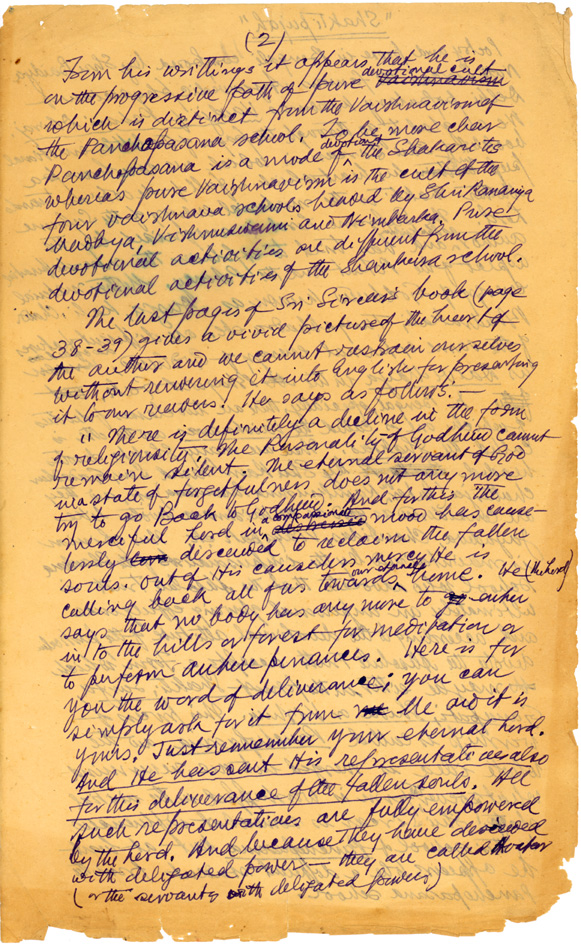 (2)
From his writtings it appears that he is
on the progressive path of pure devotional cult
which is distinct from the Vaishnavism of
the Panchopasana school. To be more clear
Panchopasana is a mode of devotion the Shakarites
whereas pure Vaishnavism is the cult of the
four vaishnava schools headed by Shri Ramanuja
Madhya, Vishnuswami and Nimbarka. Pure
devotional activities are different from the
devotional activities of the Shankara school.
The last pages of Sri Sircar's book (page
38-39) gives a vivid picture of the heart of
the author and we cannot restrain ourselves
without rendering it into English for presenting
it to our readers. He says as follows: —
" There is definitely a decline in the form
of religiosity. The Personality of Godhead cannot
remain silent. The eternal servant of God
in a state of forgetfulness does not any more
try to go Back to Godhead. And for this the
merciful Lord in a compassionate mood has cause-
lessly descended to reclaim the fallen
souls. Out of His causeless mercy He is
calling back all of us towards our eternal home. He (the Lord)
says that no body has any more to enter
in to the hills or forest for meditation or
to perform authere penances. Here is for
you the word of deliverance; you can
simply ask for it from Me and it is
yours. Just remember your eternal Lord.
And He has sent His representatives also
for this deliverance of the fallen souls. All
such representatives are fully empowered
by the Lord. And because they have descended
with deligated power — they are called Avatar
(or the servants with deligated powers)